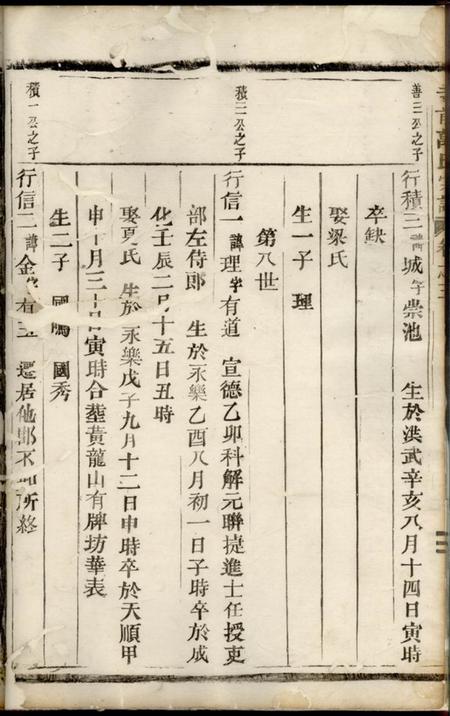 善三公之子
行積三諱城字崇池 生於洪武辛亥八月十四日寅時
卒缺
娶梁氏
生一子 理
第八世
積三公之子
行信一諱理字有道 宣德乙卯科解元聯捷進士任授吏
部左侍郎 生於永樂乙酉八月初一日子時卒於成
化壬辰二月十五日丑時
娶夏氏 生於永樂戊子九月十二日申時卒於天順甲
申十月三十日寅時合塟黄龍山有牌坊華表
生二子 國騰 國秀
積一公之子
行信二諱金 有玉 遷居他郡不 所終